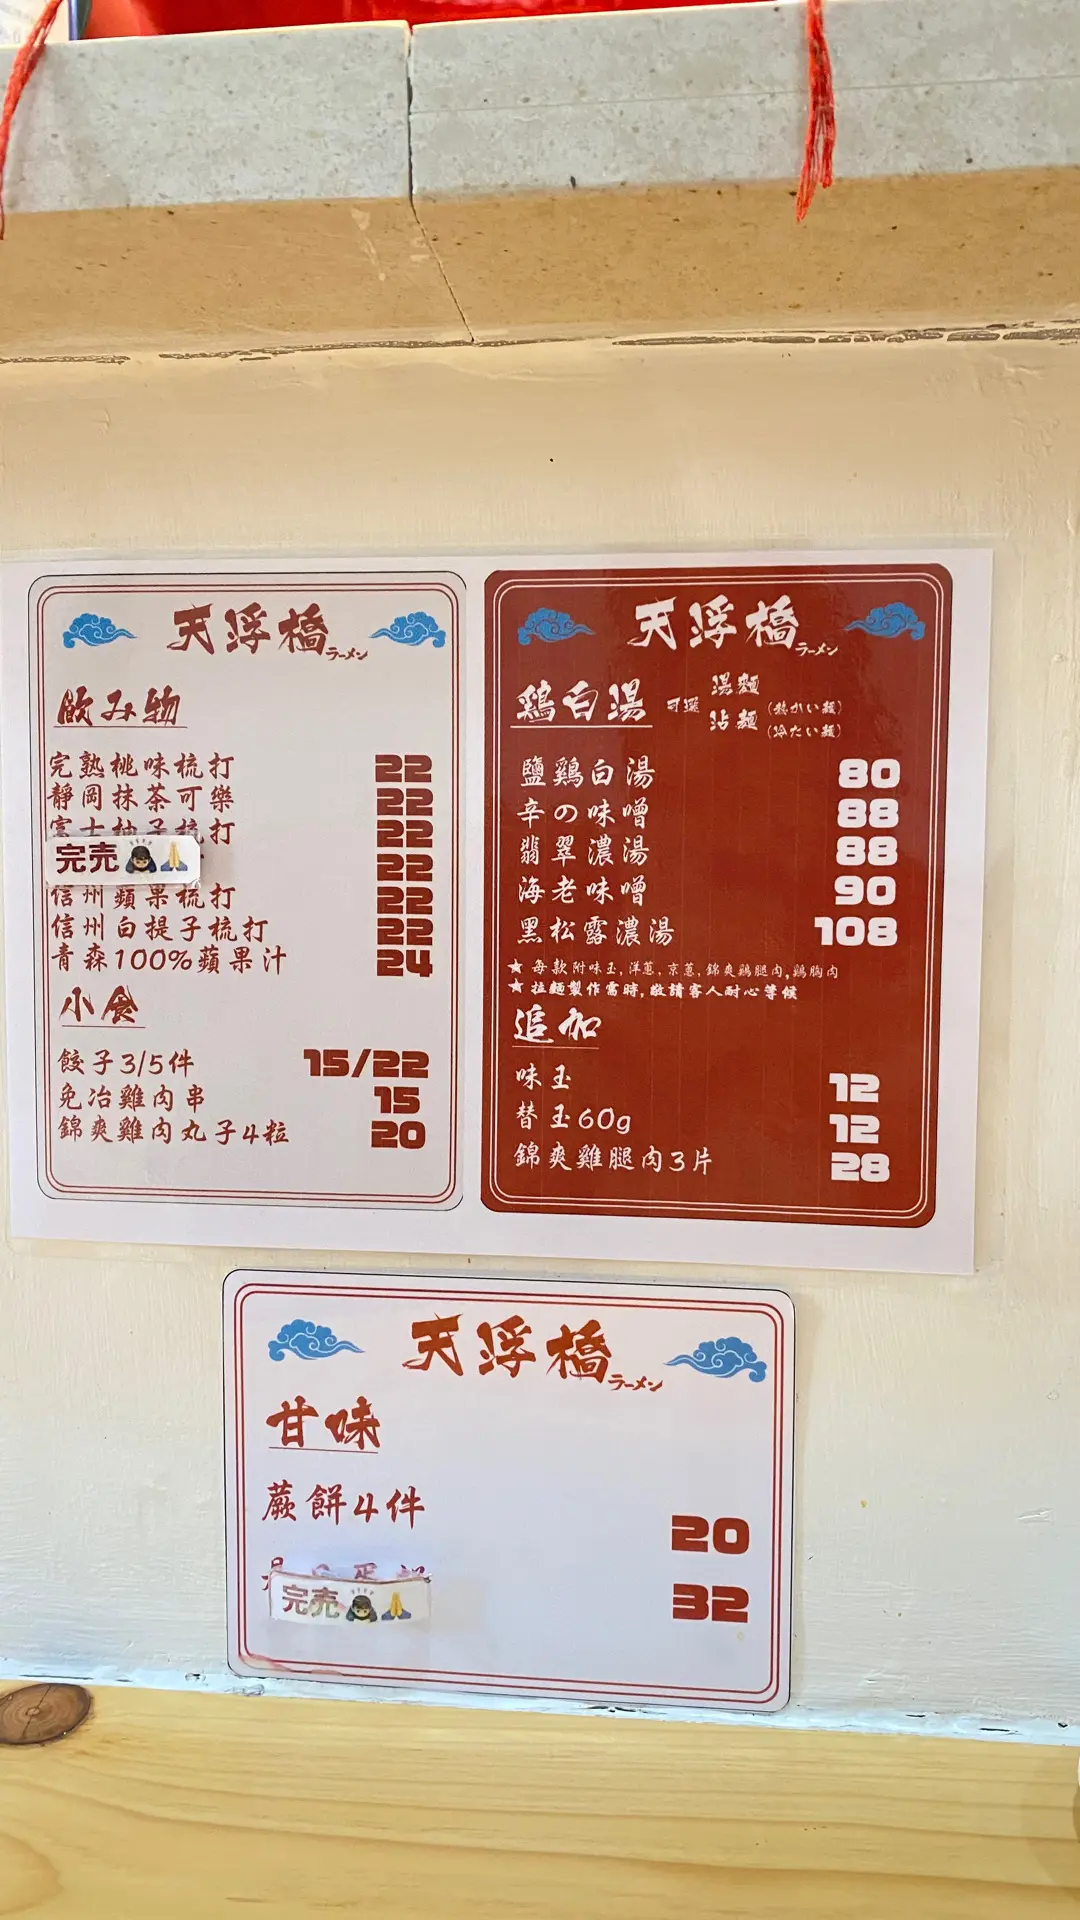 天浮橋
ラーメン
飲み物
完熟桃味梳打 22
靜岡抹茶可樂 22
富士柚子梳打 22
完売 22
信州蘋果梳打 22
信州白提子梳打 22
青森100%蘋果汁 24
小食
餃子3/5件 15/22
免治雞肉串 15
錦爽雞肉丸子4粒 20
天浮橋
ラーメン
鶏白湯 可選 湯麵 (熱かい麵)
沾麵 (冷たい麵)
鹽鶏白湯 80
辛の味噌 88
翡翠濃湯 88
海老味噌 90
黑松露濃湯 108
★ 每款附味玉,洋蔥,京蔥,錦爽鶏腿肉,鶏胸肉
★ 拉麵製作需時,敬請客人耐心等候
追加
味玉 12
替玉60g 12
錦爽雞腿肉3片 28
天浮橋
ラーメン
甘味
蕨餅4件 20
完売 32